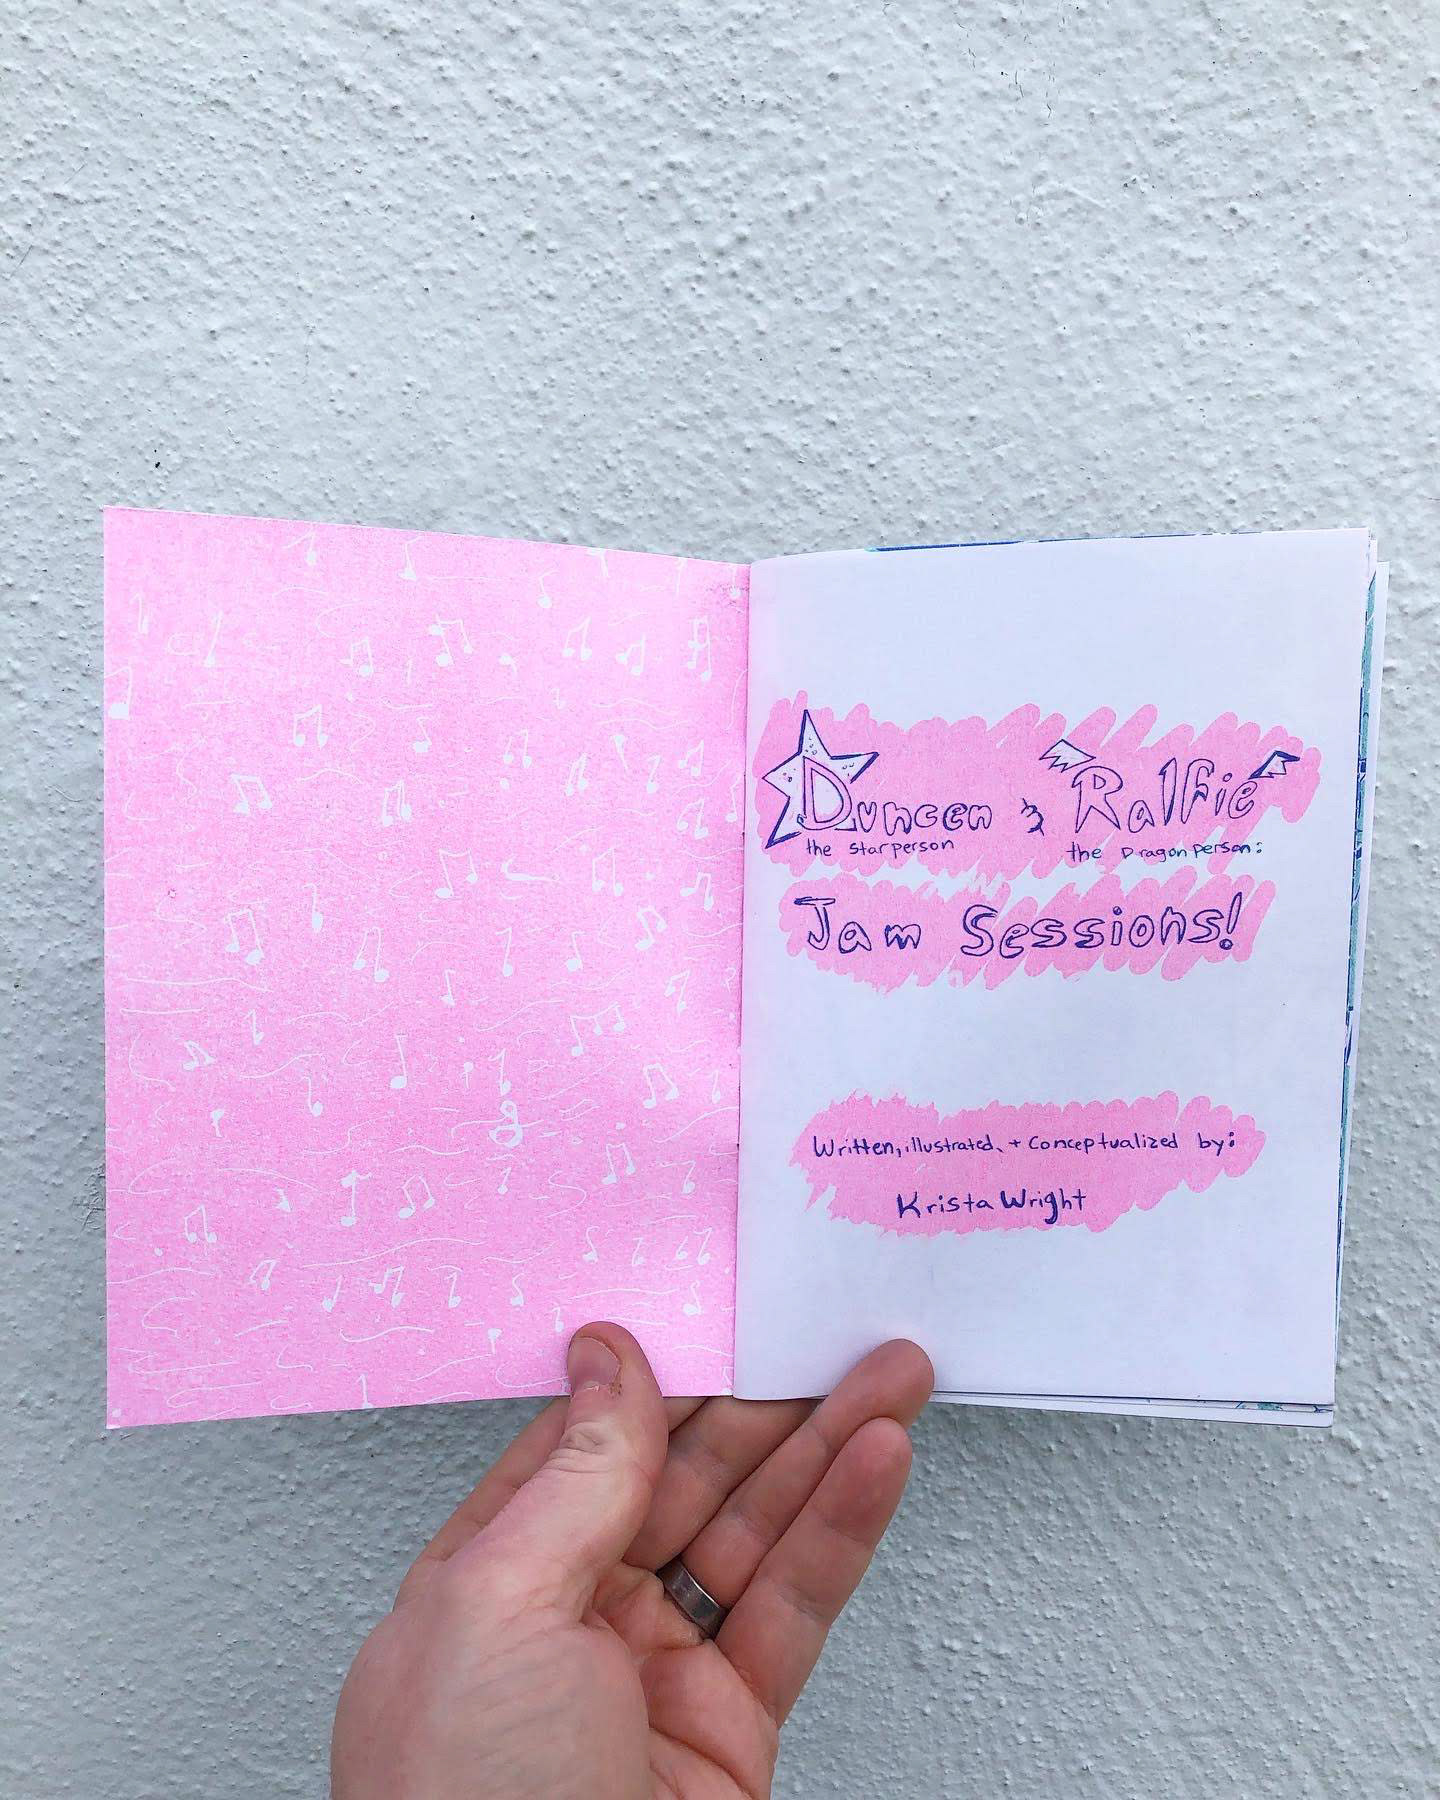 Duncen & Ralfie
the Starperson the Dragonperson:
Jam Sessions!
Written, illustrated, + Conceptualized by:
Krista Wright